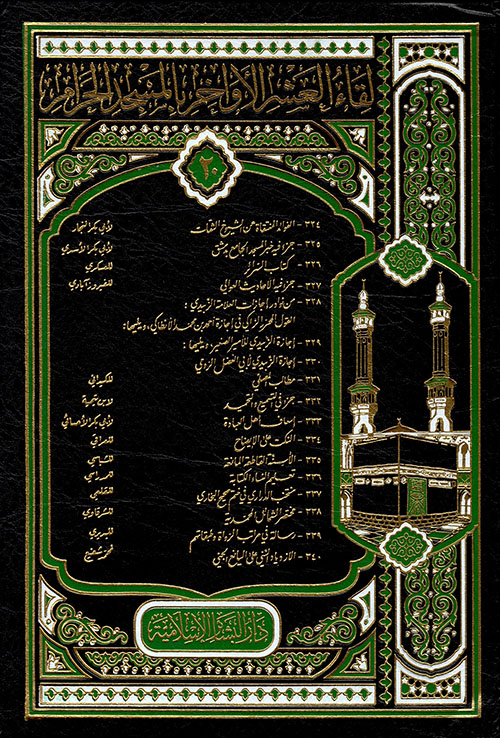 لقاء العشر الأواخر بالمسجد الحرام
٢٠
٣٢٤ - الفوائد المنتقاة عن الشيوخ الثقات لأبي بكر النجار
٣٢٥ - جزء فيه خبر المسجد الجامع بدمشق لأبي بكر الأسدي
٣٢٦ - كتاب السرائر للعسكري
٣٢٧ - جزء فيه الأحاديث العوالي للفيروزآبادي
٣٢٨ - من نوادر إجازات العلامة الزبيدي :
القول المحرر الزاكي في إجازة أحمد بن محمد الأنطاكي ، ويليها :
٣٢٩ - إجازة الزبيدي للأمير الصغير ، ويليها :
٣٣٠ - إجازة الزبيدي لأبي الفضل الزوي
٣٣١ - مطالب المصلي للكيداني
٣٣٢ - جزء في التسبيح والتحميد لابن تيمية
٣٣٣ - إسعاف أهل العبادة لأبي بكر الأحسائي
٣٣٤ - النكت على الإيضاح للعراقي
٣٣٥ - الأسنة القاطعة المانعة
٣٣٦ - تعليم النساء الكتابة للمدراسي
٣٣٧ - منتخب الدراري في ختم صحيح البخاري للقلعي
٣٣٨ - مختصر الشمائل المحمدية للشرقاوي
٣٣٩ - رسالة في مراتب الرواة وطبقاتهم
٣٤٠ - الازدياد السني على اليانع الجني محمد شفيع
دار البشائر الإسلامية